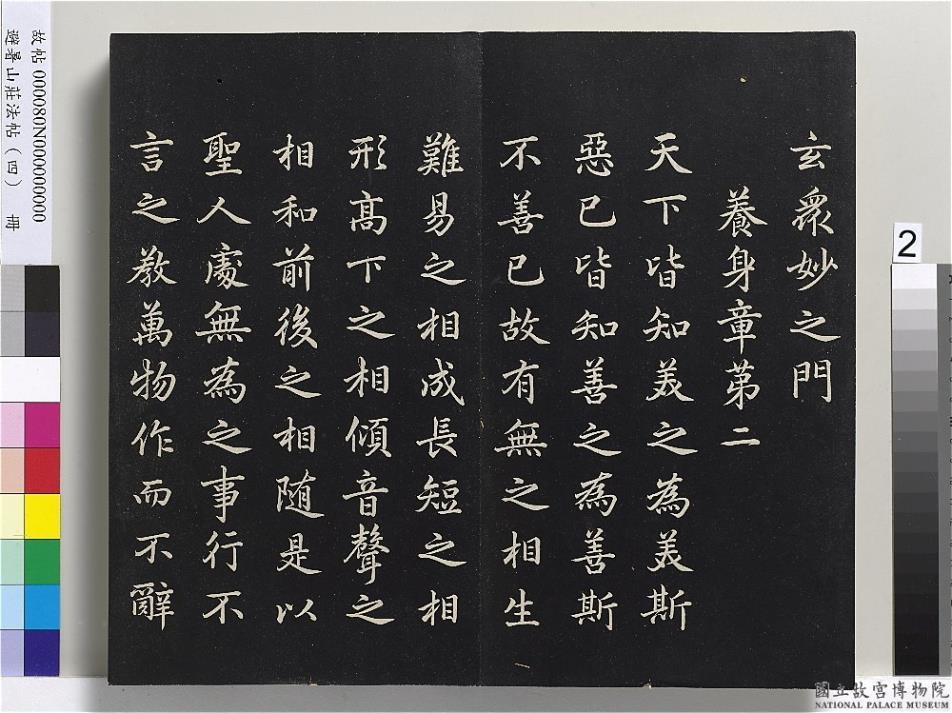 玄眾妙之門
養身章第二
天下皆知美之為美斯
惡已皆知善之為善斯
不善已故有無之相生
難易之相成長短之相
形高下之相傾音聲之
相和前後之相随是以
聖人處無為之事行不
言之教萬物作而不辭
故帖 000080N000000000
避暑山莊法帖(四) 冊
2
國立故宮博物院
NATIONAL PALACE MUSEUM